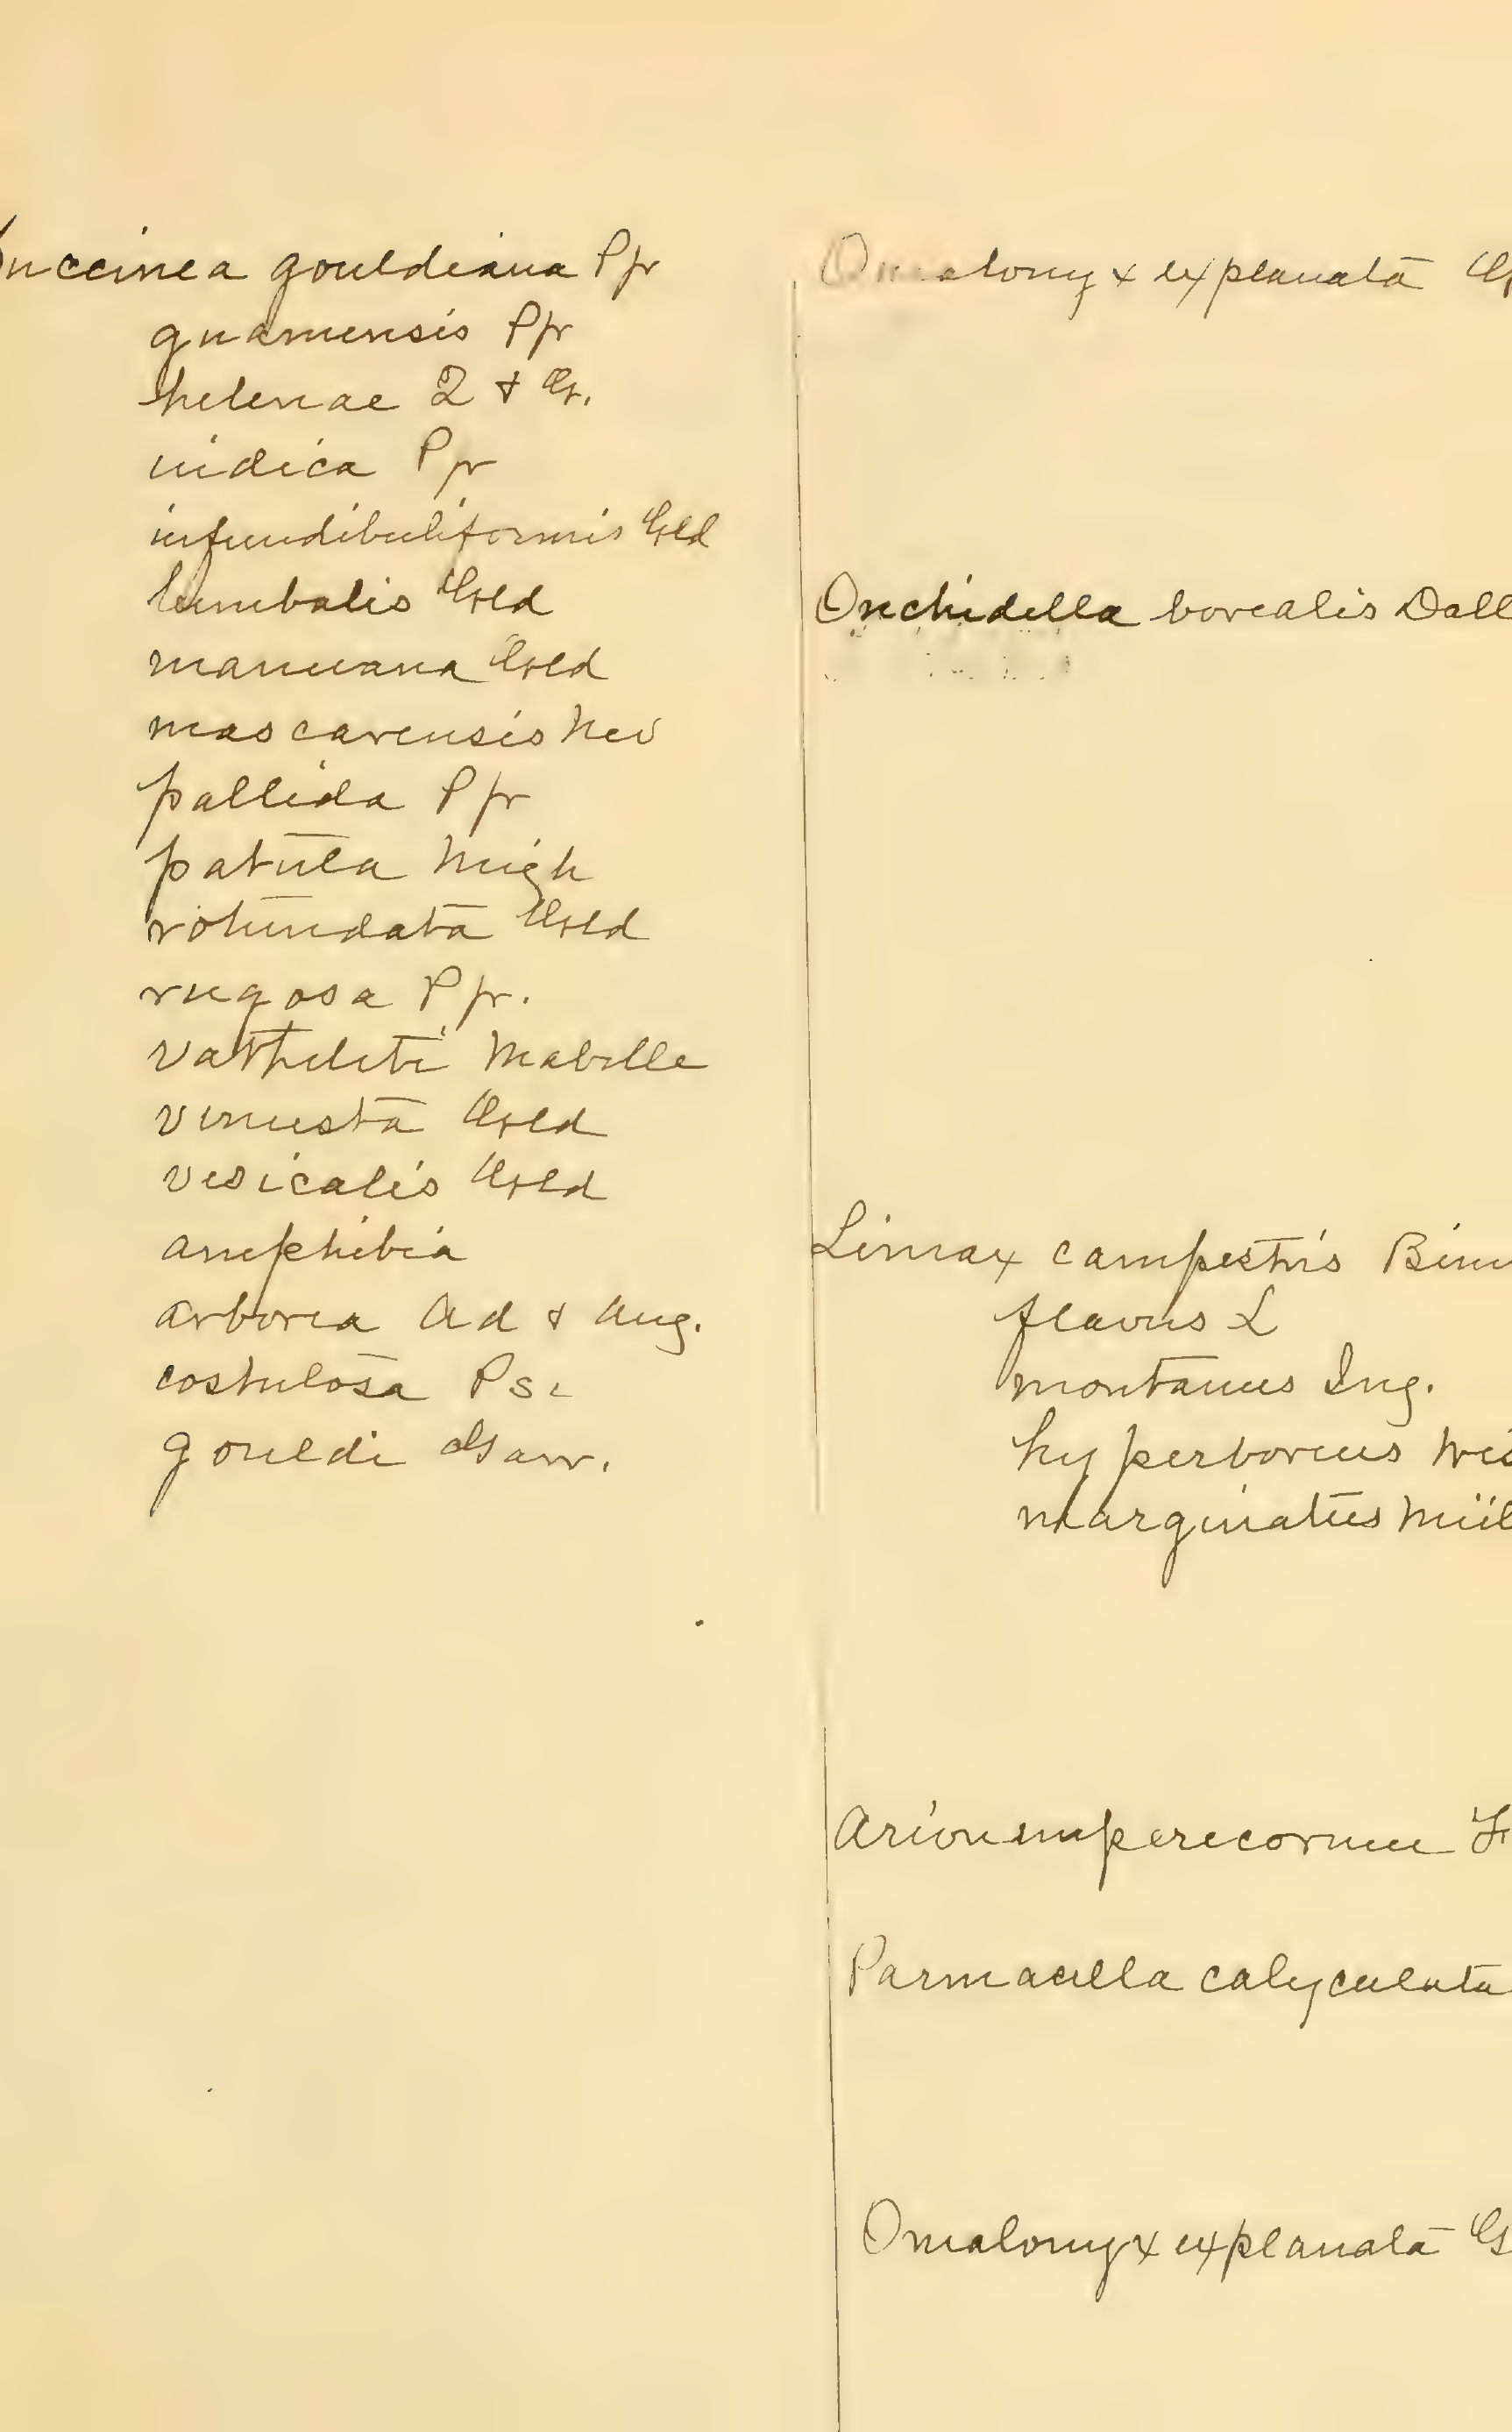 Succinea gouldiana Pfr
guamensis Pfr
helenae Q & G.
indica Pfr
infundibuliformis Gld
lumbalis Gld
manuana Gld
mascarensis Nev
pallida Pfr
patula Migh
rotundata Gld
rugosa Pfr.
vatheleti Mabille
venusta Gld
vesicalis Gld
amphibia
arborea Ad & Ang.
costulosa Pse
gouldi Garr.
Omalonyx explanata G
Onchidella borealis Dall
Limax campestris Binn
flavus L
montanus Ing.
hyperboreus
marginatus Mül
Arion
Parmacella calyculata
Omalonyx explanata G